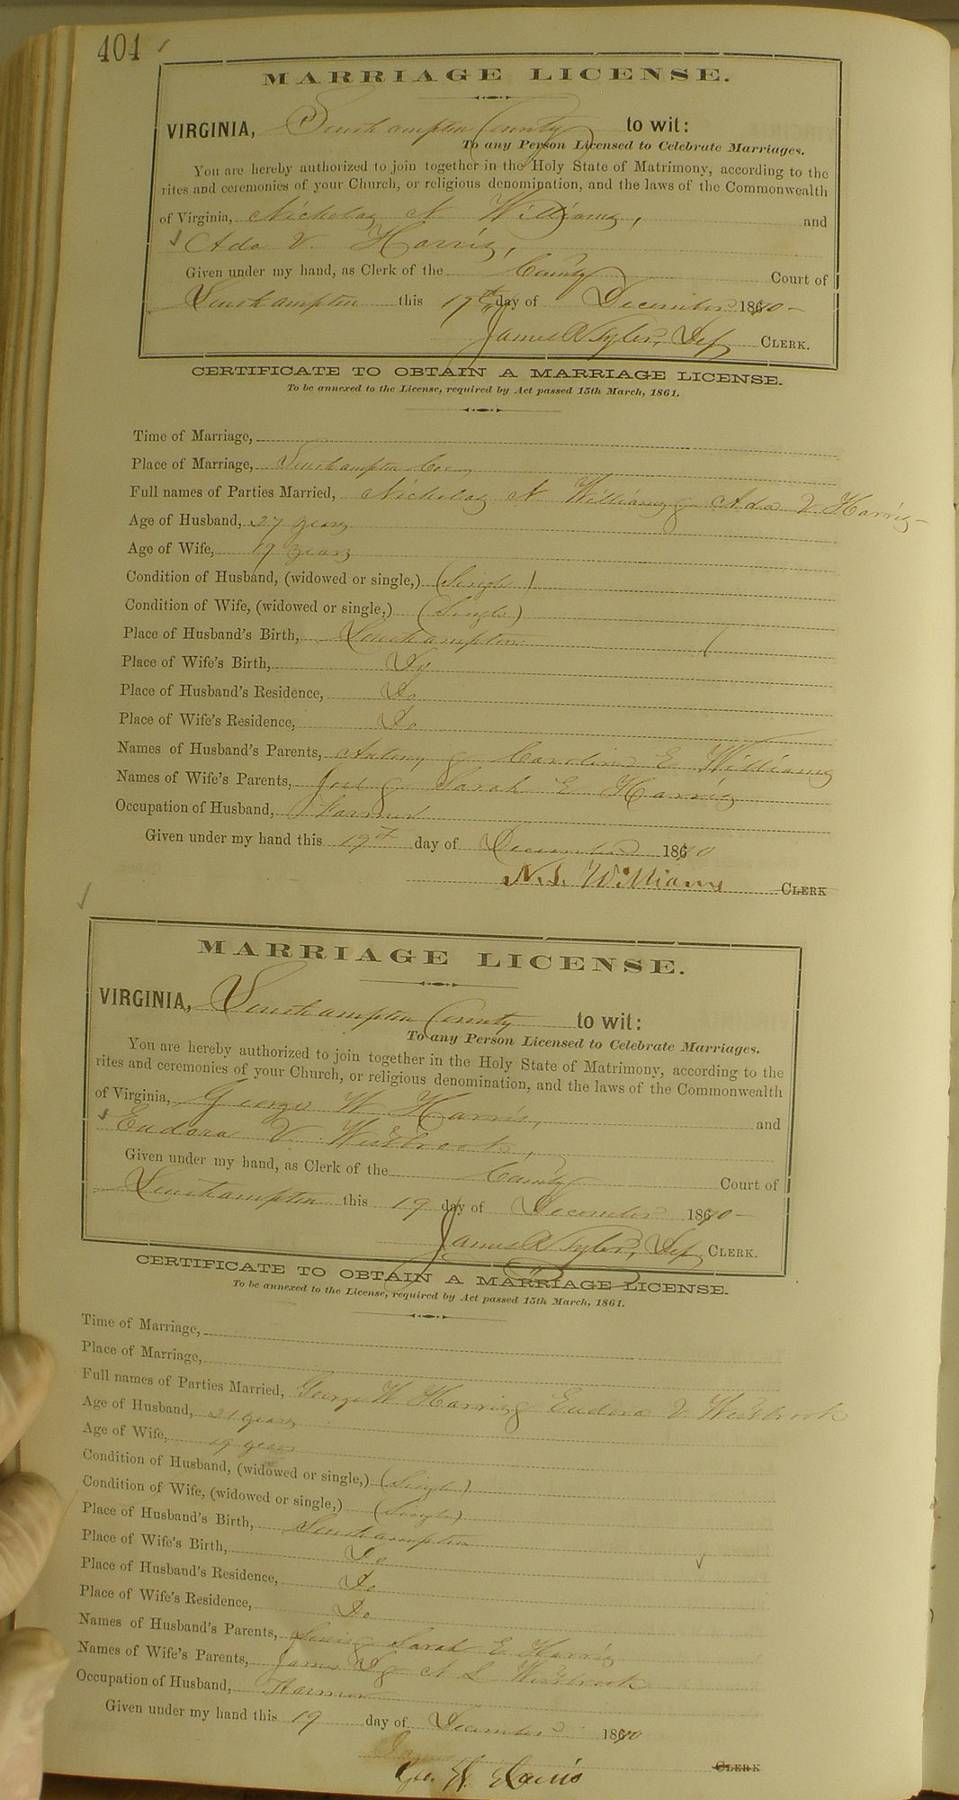 404
MARRIAGE LICENSE.
VIRGINIA, Southampton County to wit:
To any Person Licensed to Celebrate Marriages.
You are hereby authorized to join together in the Holy State of Matrimony, according to the
rites and ceremonies of your Church, or religious denomination, and the laws of the Commonwealth
of Virginia, Nicholas N Williams, and
Ada V. Harris,
Given under my hand, as Clerk of the County Court of
Southampton this 19th day of December 1870
James R Tyler, Dep CLERK.
CERTIFICATE TO OBTAIN A MARRIAGE LICENSE.
To be annexed to the License, required by Act passed 15th March, 1861.
Time of Marriage,
Place of Marriage, Southampton Co
Full names of Parties Married, Nicholas N Williams & Ada V Harris
Age of Husband, 27 years
Age of Wife, 19 years
Condition of Husband, (widowed or single,) (Single)
Condition of Wife, (widowed or single,) (Single)
Place of Husband's Birth, Southampton
Place of Wife's Birth, Do
Place of Husband's Residence, Do
Place of Wife's Residence, Do
Names of Husband's Parents, & Caroline E Williams
Names of Wife's Parents, Joel & Sarah E Harris
Occupation of Husband, Farmer
Given under my hand this 19th day of December 1870
Williams CLERK
MARRIAGE LICENSE.
VIRGINIA, Southampton County to wit:
To any Person Licensed to Celebrate Marriages.
You are hereby authorized to join together in the Holy State of Matrimony, according to the
rites and ceremonies of your Church, or religious denomination, and the laws of the Commonwealth
of Virginia, George W Harris, and
Eudora V. Westbrook,
Given under my hand, as Clerk of the County Court of
Southampton this 19 day of December 1870
James R Tyler, Dep CLERK.
CERTIFICATE TO OBTAIN A MARRIAGE LICENSE.
To be annexed to the License, required by Act passed 15th March, 1861.
Time of Marriage,
Place of Marriage,
Full names of Parties Married, George W Harris & Eudora V Westbrook
Age of Husband, 21 years
Age of Wife, 19 years
Condition of Husband, (widowed or single,) (Single)
Condition of Wife, (widowed or single,) (Single)
Place of Husband's Birth, Southampton
Place of Wife's Birth, Do
Place of Husband's Residence, Do
Place of Wife's Residence, Do
Names of Husband's Parents, & Sarah E Harris
Names of Wife's Parents, James & Westbrook
Occupation of Husband, Farmer
Given under my hand this 19 day of December 1870
CLERK
Geo. W. Harris